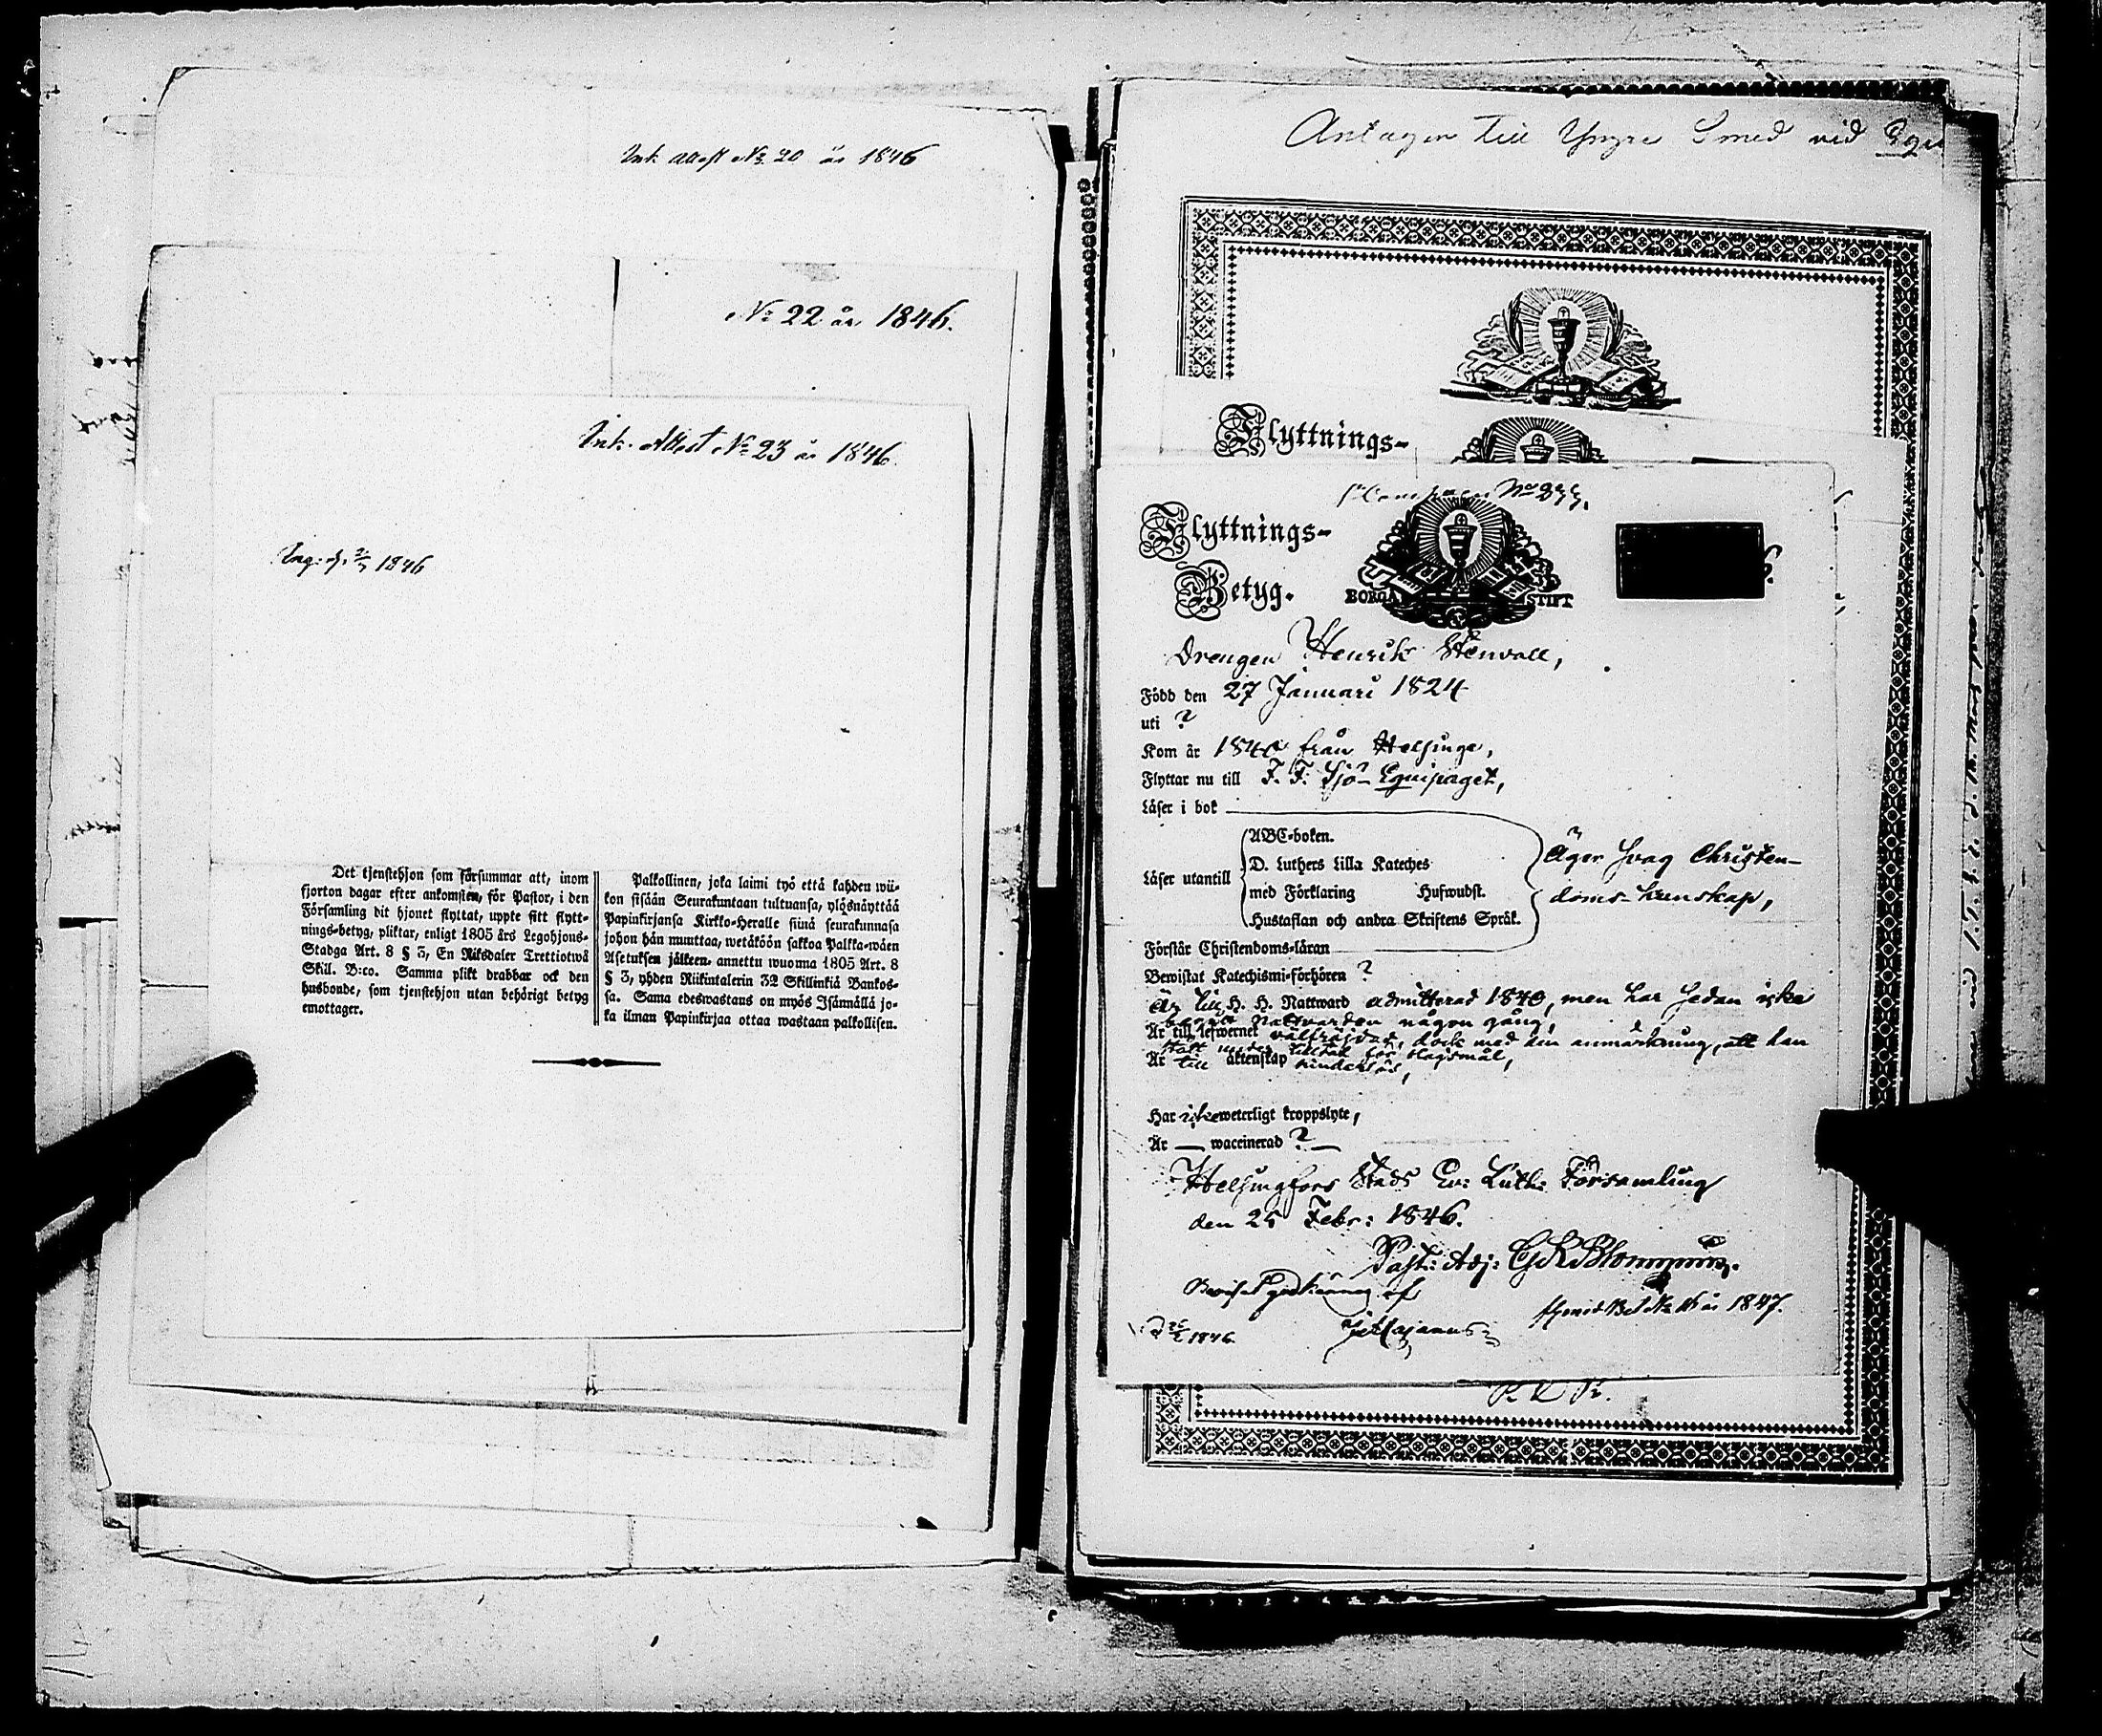 Ink. Attest No. 20 år 1846
No 22 år 1846.
Ink. Attest No 23 år 1846.
1846
Det tjenstehjon som försummar att, inom
fjorton dagar efter ankomsten, för Pastor, i den
Församling dit hjonet flyttat, uppte sitt flytt-
nings-betyg, pliktar, enligt 1805 års Legohjons-
Stadga Art. 8 § 3, En Riksdaler Trettiotwå
Skill. B:co. Samma plikt drabbar ock den
husbonde, som tjenstehjon utan behörigt betyg
emottager.
Palkollinen, joka laimi työ että kahden wii-
kon sisään Seurakuntaan tultuansa, ylösnäyttää
Papinkirjansa Kirkko-Heralle siinä seurakunnasa
johon hän muuttaa, wetäköön sakkoa Palkka-wäen
Asetuksen jälkeen annettu wuonna 1805 Art. 8
§ 3, yhden Riikintalerin 32 Skillinkiä Bankos-
sa. Sama edeswastaus on myös Isännällä jo-
ka ilman Papinkirjaa ottaa wastaan palkollisen.
Antagen till Yngre Smed vid
Flyttnings-
Flyttnings-
Betyg.
BORGÅ STIFT
Drengen Henrik Stenvall,
Född den 27 Januari 1824
uti ?
Kom år 1840 från Helsinge,
Flyttar nu till F. F. Sjö-Equipaget,
Läser i bok
Läser utantill
ABC-boken.
D. Luthers Lilla Kateches
med Förklaring Hufwudst.
Hustaflan och andra Skriftens Språk.
Äger svag Christen-
doms-kunskap,
Förstår Christendoms-läran
Bewistat Katechismi-förhören ?
Är till H. H. Nattward admitterad 1840, men har sedan icke
begått Nattvarden någon gång,
Är till lefwernet välfräjdad, dock med den anmärkning, att han
stått under tilltal för slagsmål,
Är till äktenskap hinderslös,
Har icke weterligt kroppslyte,
Är — waccinerad ? —
Helsingfors Stads Ev: Luth: Församling
den 25 Febr: 1846.
Past: Adj:
1847.
1846